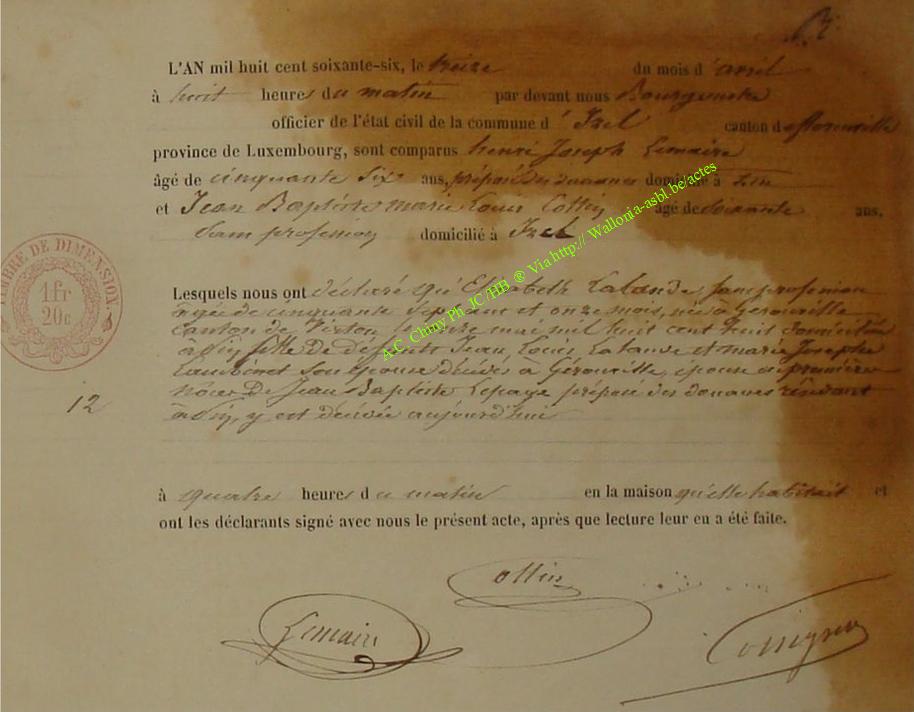 L'AN mil huit cent soixante-six, le treize du mois d'avril
à huit heures du matin par devant nous Bourgmestre
officier de l'état civil de la commune d'Izel canton de florenville
province de Luxembourg, sont comparus henri Joseph Lemaire
âgé de cinquante six ans, préposé des douanes domicilié à
et Jean Baptiste marie Louis Cottin âgé de soixante ans,
Sans profession domicilié à Izel
TIMBRE DE DIMENSION
1 fr
20 c
Lesquels nous ont déclaré qu'Elisabeth Lalande sans profession
agée de cinquante sept ans et onze mois, née à Gérouville
Canton de Virton mai mil huit cent huit domiciliée
fille de défunts Jean Louis Lalande et marie Josephe
Lambinet son épouse décédés à Gérouville, épouse en première
12
Noces de Jean Baptiste Lepage préposé des douanes résidant
y est décédée aujourd'hui
à quatre heures du matin en la maison qu'elle habitait et
ont les déclarants signé avec nous le présent acte, après que lecture leur en a été faite.
Cottin
Lemaire
A.C. Chiny Ph. JC /HB ® Via http:// Wallonia-asbl.be/actes